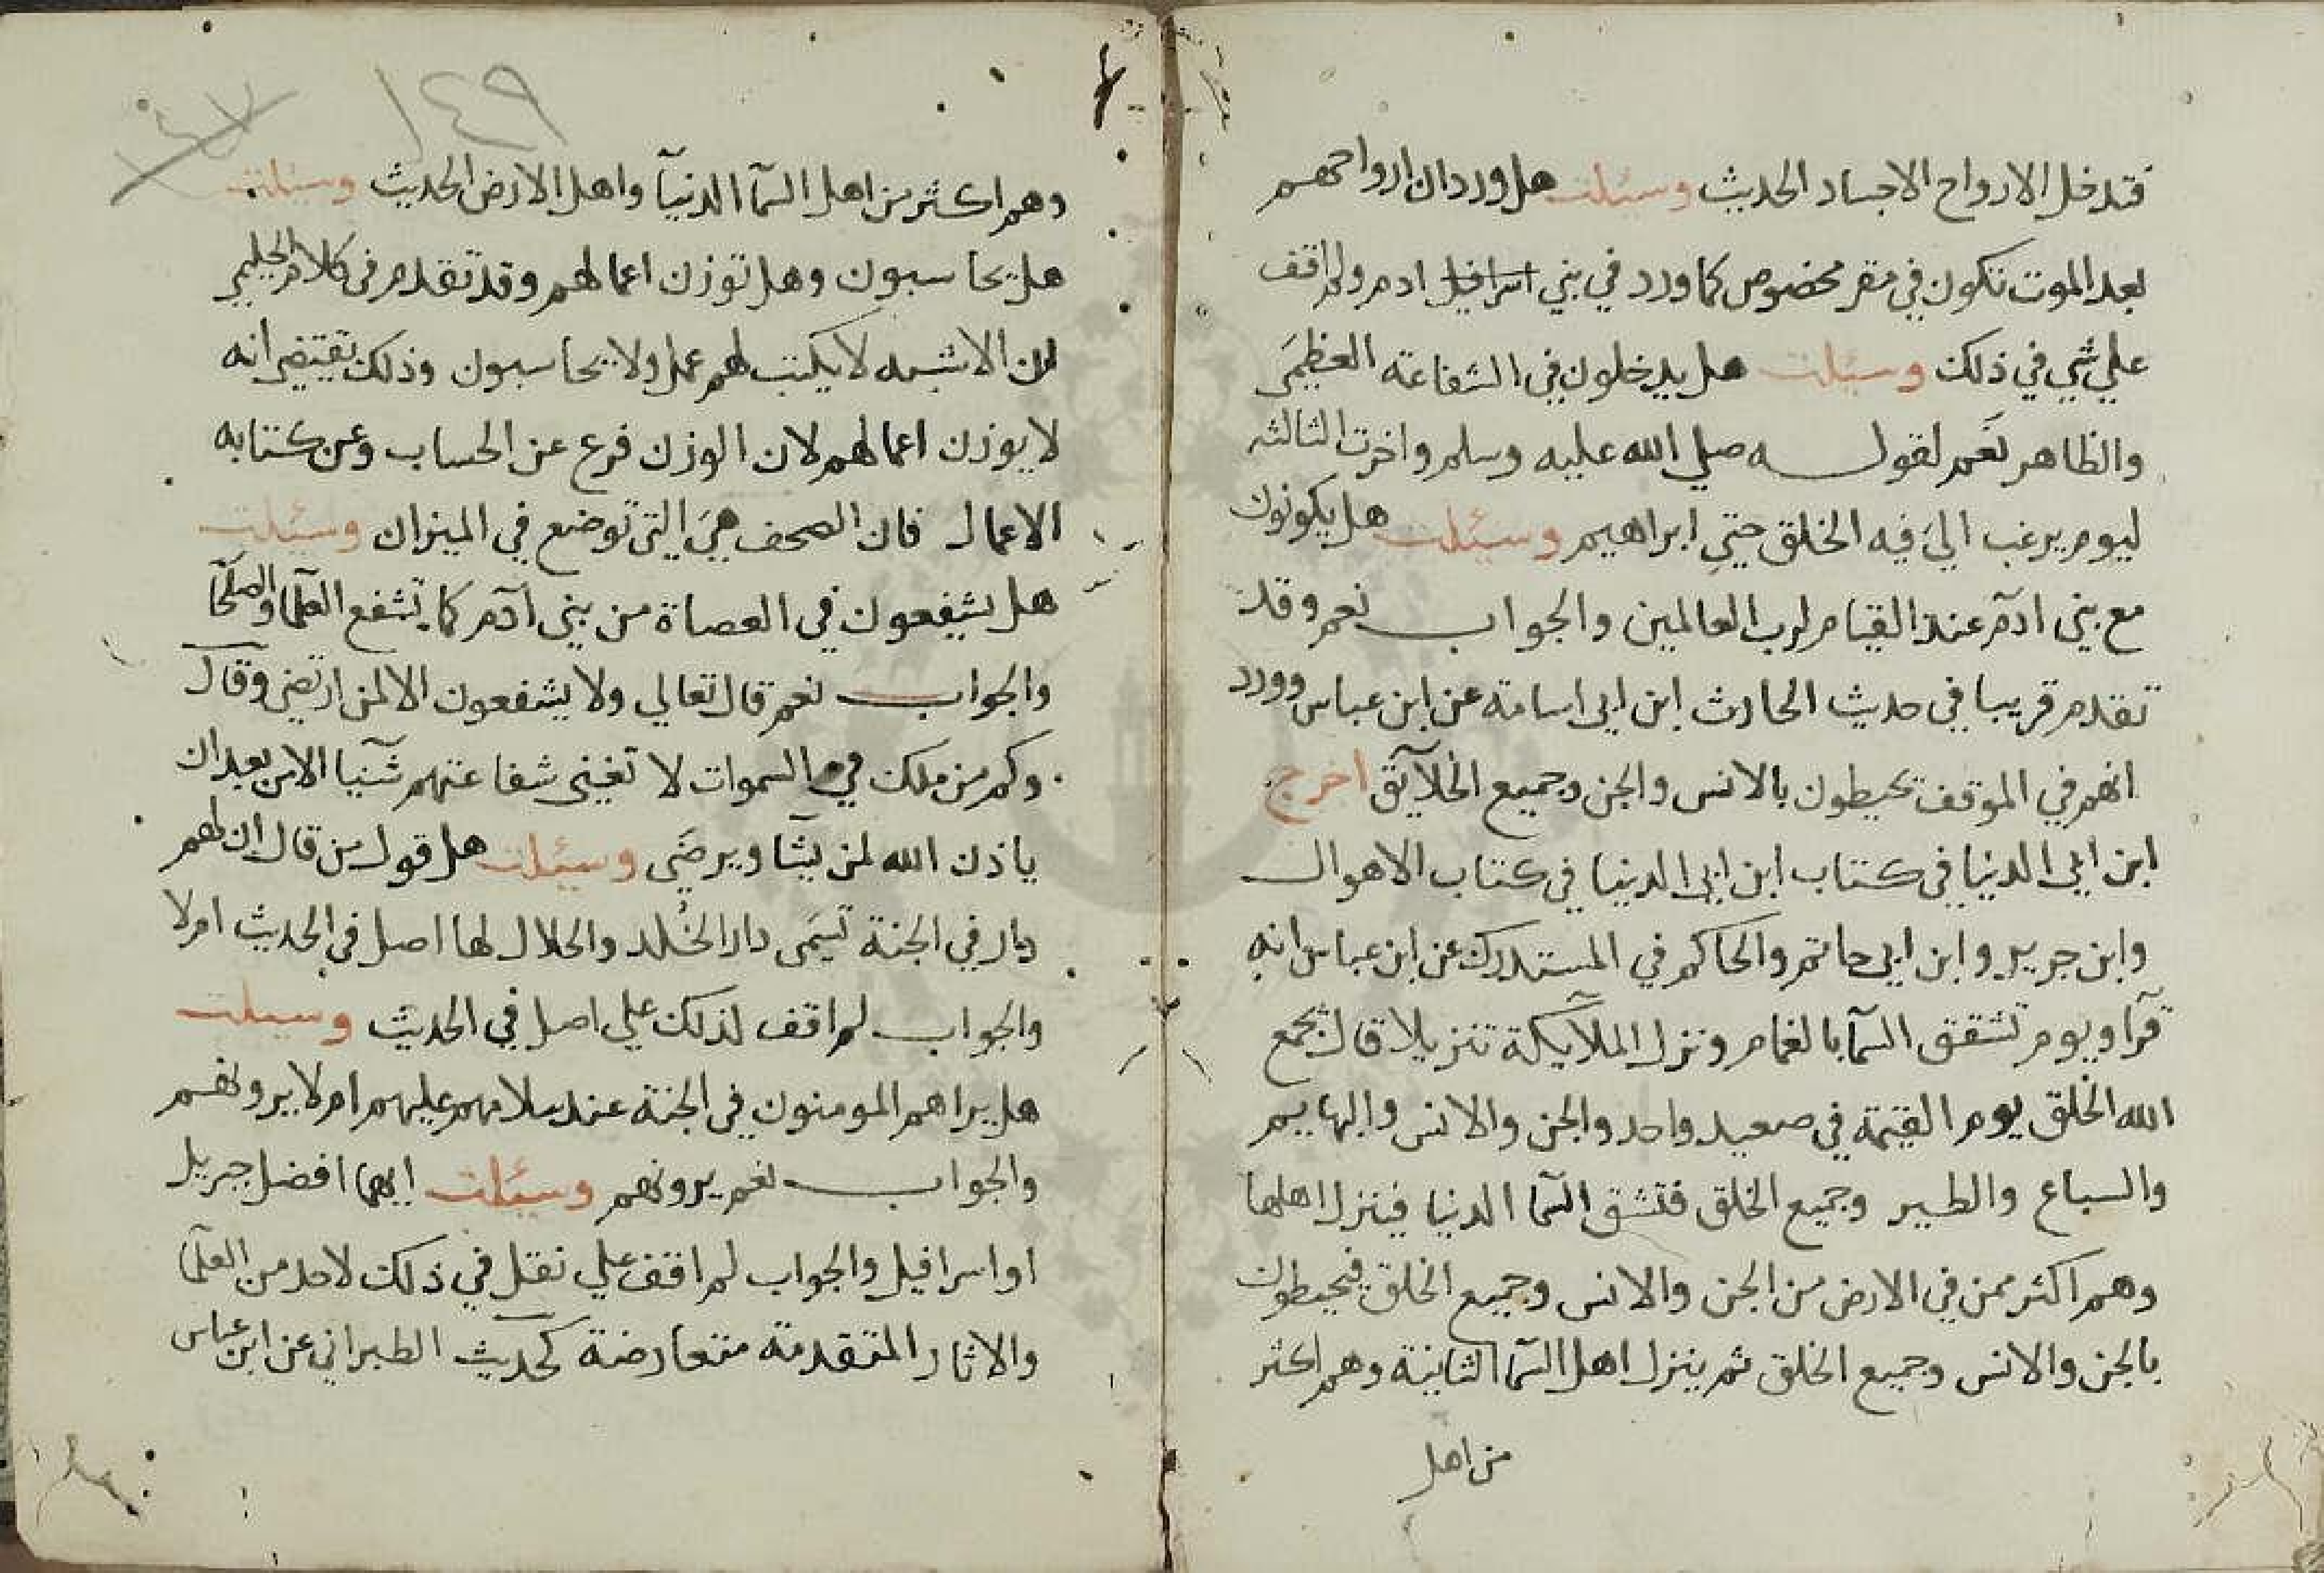 فتدخل الارواح الاجساد الحديث وسئلت هل ورد ان ارواحهم
بعد الموت تكون في مقر مخصوص كما ورد في بني اسرافيل ادم ولم اقف
علي شي في ذلك وسئلت هل يدخلون في الشفاعة العظمى
والظاهر نعم لقوله صلي الله عليه وسلم واخرت الثالثه
ليوم يرغب الي فيه الخلق حتي ابراهيم وسئلت هل يكونون
مع بني ادم عند القيام لرب العالمين والجواب نعم وقد
تقدم قريبا في حديث الحارث ابن ابي اسامة عن ابن عباس وورد
انهم في الموقف يحيطون بالانس والجن وجميع الخلآئق اخرج
ابن ابي الدنيا في كتاب ابن ابي الدنيا في كتاب الاهوال
وابن جرير وابن ابي حاتم والحاكم في المستدرك عن ابن عباس انه
قرآ ويوم تشقق السمآ بالغمام ونزل الملآيكة تنزيلا قال يجمع
الله الخلق يوم القيمة في صعيد واحد والجن والانس والبهايم
والسباع والطير وجميع الخلق فتشق السمآ الدنيا فينزل اهلها
وهم اكثر ممن في الارض من الجن والانس وجميع الخلق فيحيطون
بالجن والانس وجميع الخلق ثم ينزل اهل السمآ الثانية وهم اكثر
من اهل
١٤٩
وهم اكثر من اهل السمآ الدنيآ واهل الارض الحديث وسئلت
هل يحاسبون وهل توزن اعمالهم وقد تقدم في كلام الحليمي
ان الاشبه لا يكتب لهم عمل ولا يحاسبون وذلك يقتضي انه
لا يوزن اعمالهم لان الوزن فرع عن الحساب وعن كتابه
الاعمال فان الصحف هي التي توضع في الميزان وسئلت
هل يشفعون في العصاة من بني آدم كما تشفع العلمآ والصلحآ
والجواب نعم قال تعالي ولا يشفعون الا لمن ارتضي وقال
وكم من ملك في السموات لا تغني شفاعتهم شيئا الا من بعد ان
ياذن الله لمن يشآ ويرضى وسئلت هل قول من قال ان لهم
دار في الجنة تسمى دار الخُلد والحلال لها اصل في الحديث ام لا
والجواب لم اقف لذلك علي اصل في الحديث وسيلت
هل يراهم المومنون في الجنة عند سلامهم عليهم ام لا يرونهم
والجواب نعم يرونهم وسئلت ايهما افضل جبريل
او اسرافيل والجواب لم اقف علي نقل في ذلك لاحد من العلمآ
والاثار المتقدمة متعارضة كحديث الطبراني عن ابن عباس